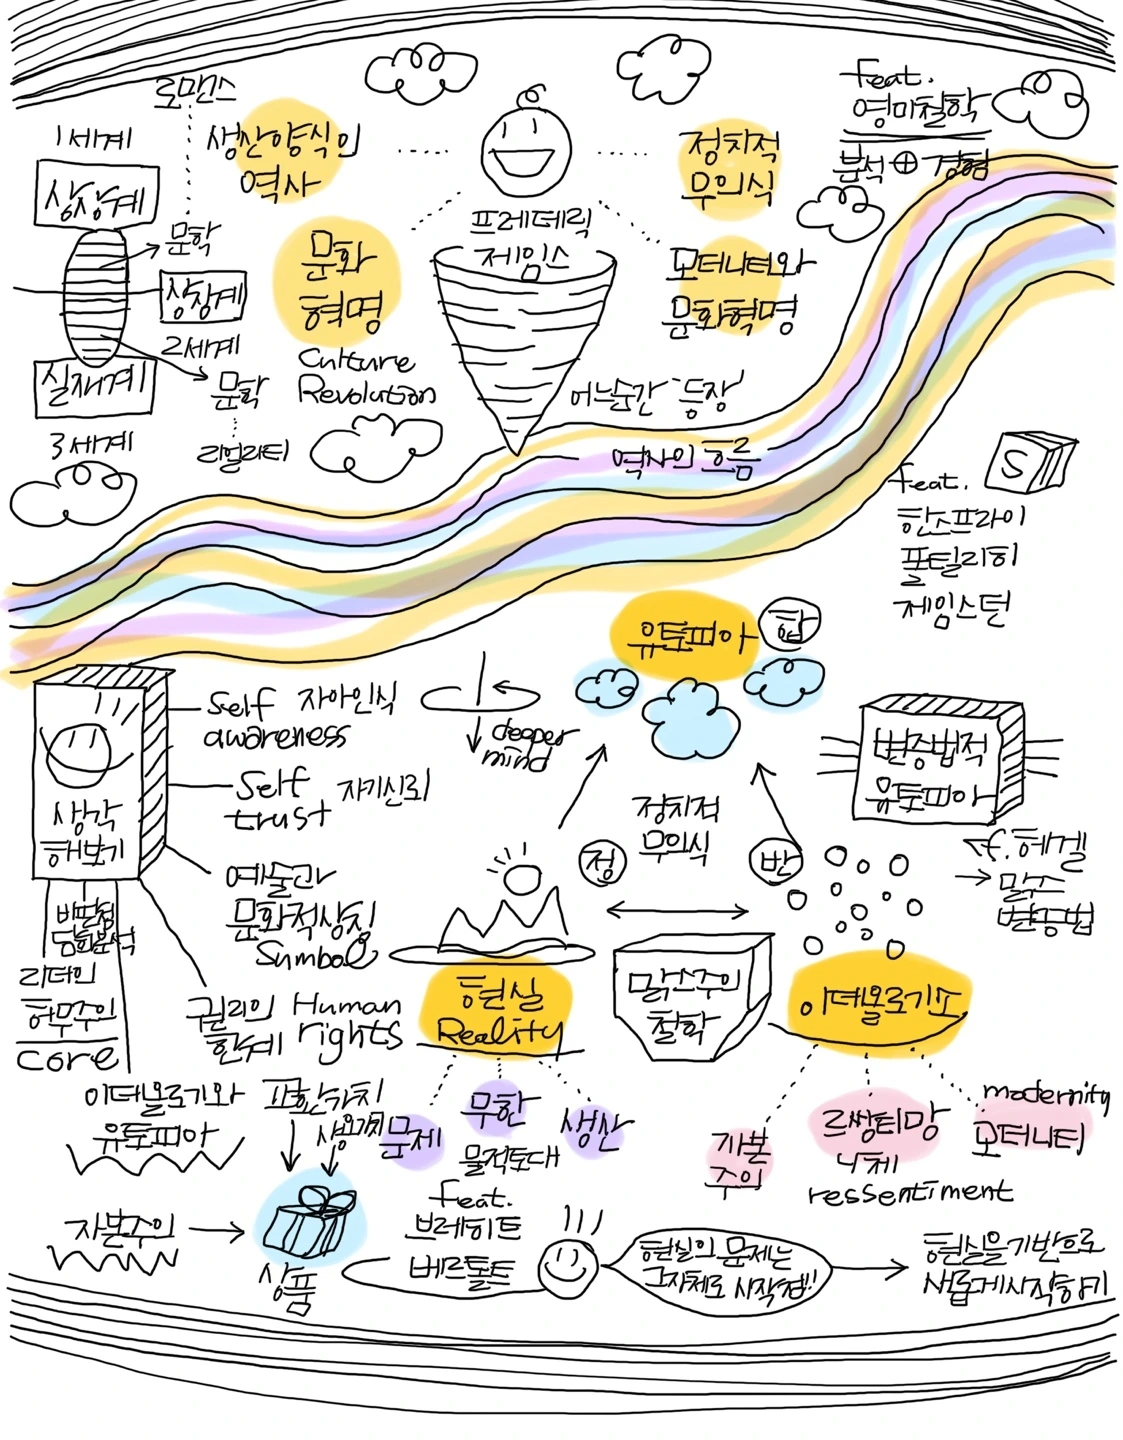 로맨스
1세계
상상계
문학
상징계
2세계
실재계
문학
3세계
리얼리티
생산양식의
역사
문화
혁명
Culture
Revolution
프레데릭
제임스
정치적
무의식
모더니티와
문화혁명
feat.
영미철학
분석 ⊕ 경험
어느순간 '등장'
역사의 흐름
S
feat.
한소프라이
폴틸리히
제임스턴
유토피아
합
생각
해보기
self 자아인식
awareness
self 자기신뢰
trust
예술과
문화적상징
Symbol
권리의 Human
한계 rights
비판점
담화분석
리더인
허무주의
core
deeper
mind
정치적
무의식
정
반
변증법적
유토피아
cf. 헤겔
→ 맑스
변증법
현실
Reality
맑스주의
철학
이데올로기소
이데올로기와
유토피아
교환가치
사용가치
자본주의
상품
문제
무한
생산
물적토대
feat.
브레히트
베르톨트
자본
주의
르쌍티망
니체
ressentiment
modernity
모더니티
현실의 문제는
그자체로 시작점!!
현실을기반으로
새롭게시작하기